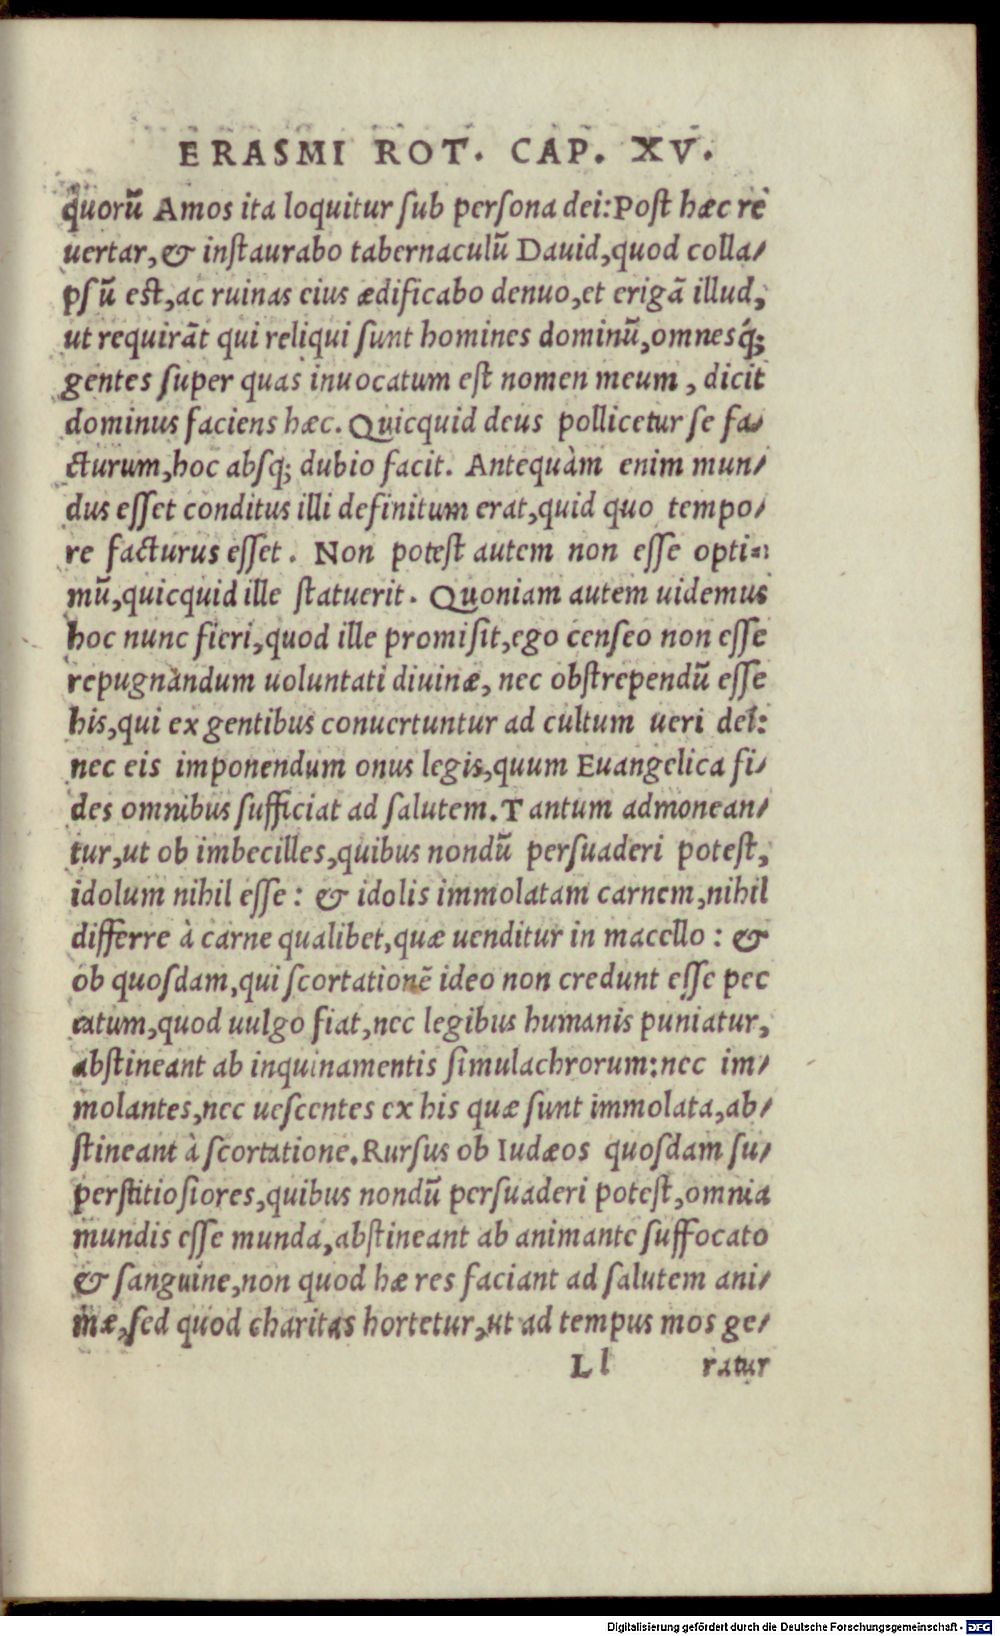 ERASMI ROT. CAP. XV.
quorũ Amos ita loquitur ſub perſona dei:Poſt hæc re
uertar,& inſtaurabo tabernaculũ Dauid,quod colla/
pſũ est,ac ruinas eius ædificabo denuo,et erigã illud,
ut requirãt qui reliqui ſunt homines dominũ,omnesq́;
gentes ſuper quas inuocatum eſt nomen meum , dicit
dominus faciens hæc. Quicquid deus pollicetur ſe fa/
cturum,hoc abſq; dubio facit. Antequàm enim mun/
dus eſſet conditus illi definitum erat,quid quo tempo/
re facturus eſſet . Non poteſt autem non eſſe opti=
mũ,quicquid ille ſtatuerit. Quoniam autem uidemus
hoc nunc fieri,quod ille promiſit,ego cenſeo non eſſe
repugnandum uoluntati diuinæ, nec obſtrependũ eſſe
his,qui ex gentibus conuertuntur ad cultum ueri dei:
nec eis imponendum onus legis,quum Euangelica fi/
des omnibus ſufficiat ad ſalutem.Tantum admonean/
tur,ut ob imbecilles,quibus nondũ perſuaderi poteſt,
idolum nihil eſſe : & idolis immolatam carnem,nihil
differre à carne qualibet,quæ uenditur in macello : &
ob quoſdam,qui ſcortationẽ ideo non credunt eſſe pec
catum,quod uulgo fiat,nec legibus humanis puniatur,
abſtineant ab inquinamentis ſimulachrorum:nec im/
molantes,nec ueſcentes ex his quæ ſunt immolata,ab/
ſtineant à ſcortatione.Rurſus ob Iudæos quoſdam ſu/
perſtitioſiores,quibus nondũ perſuaderi poteſt,omnia
mundis eſſe munda,abſtineant ab animante ſuffocato
& ſanguine,non quod hæ res faciant ad ſalutem ani/
mæ,ſed quod charitas hortetur,ut ad tempus mos ge/
Ll ratur
Digitalisierung gefördert durch die Deutsche Forschungsgemeinschaft - DFG